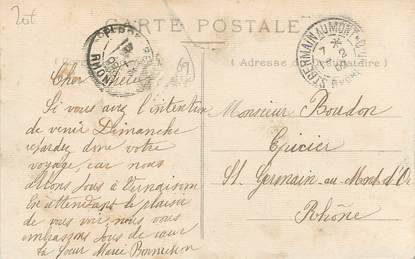 20t
CARTE POSTALE
(Adresse du Destinataire)
ST GERMAIN AU MONT D'OR
RHÔNE
RHÔNE
Cher
Si vous avez l'intention
de venir Dimanche
retardez donc votre
voyage, car nous
allons tous à
En attendant le plaisir
de vous voir, nous vous
embrassons tous de cœur
ta sœur Marie
Monsieur Boudon
Epicier
St. Germain-au-Mont-d'Or
Rhône